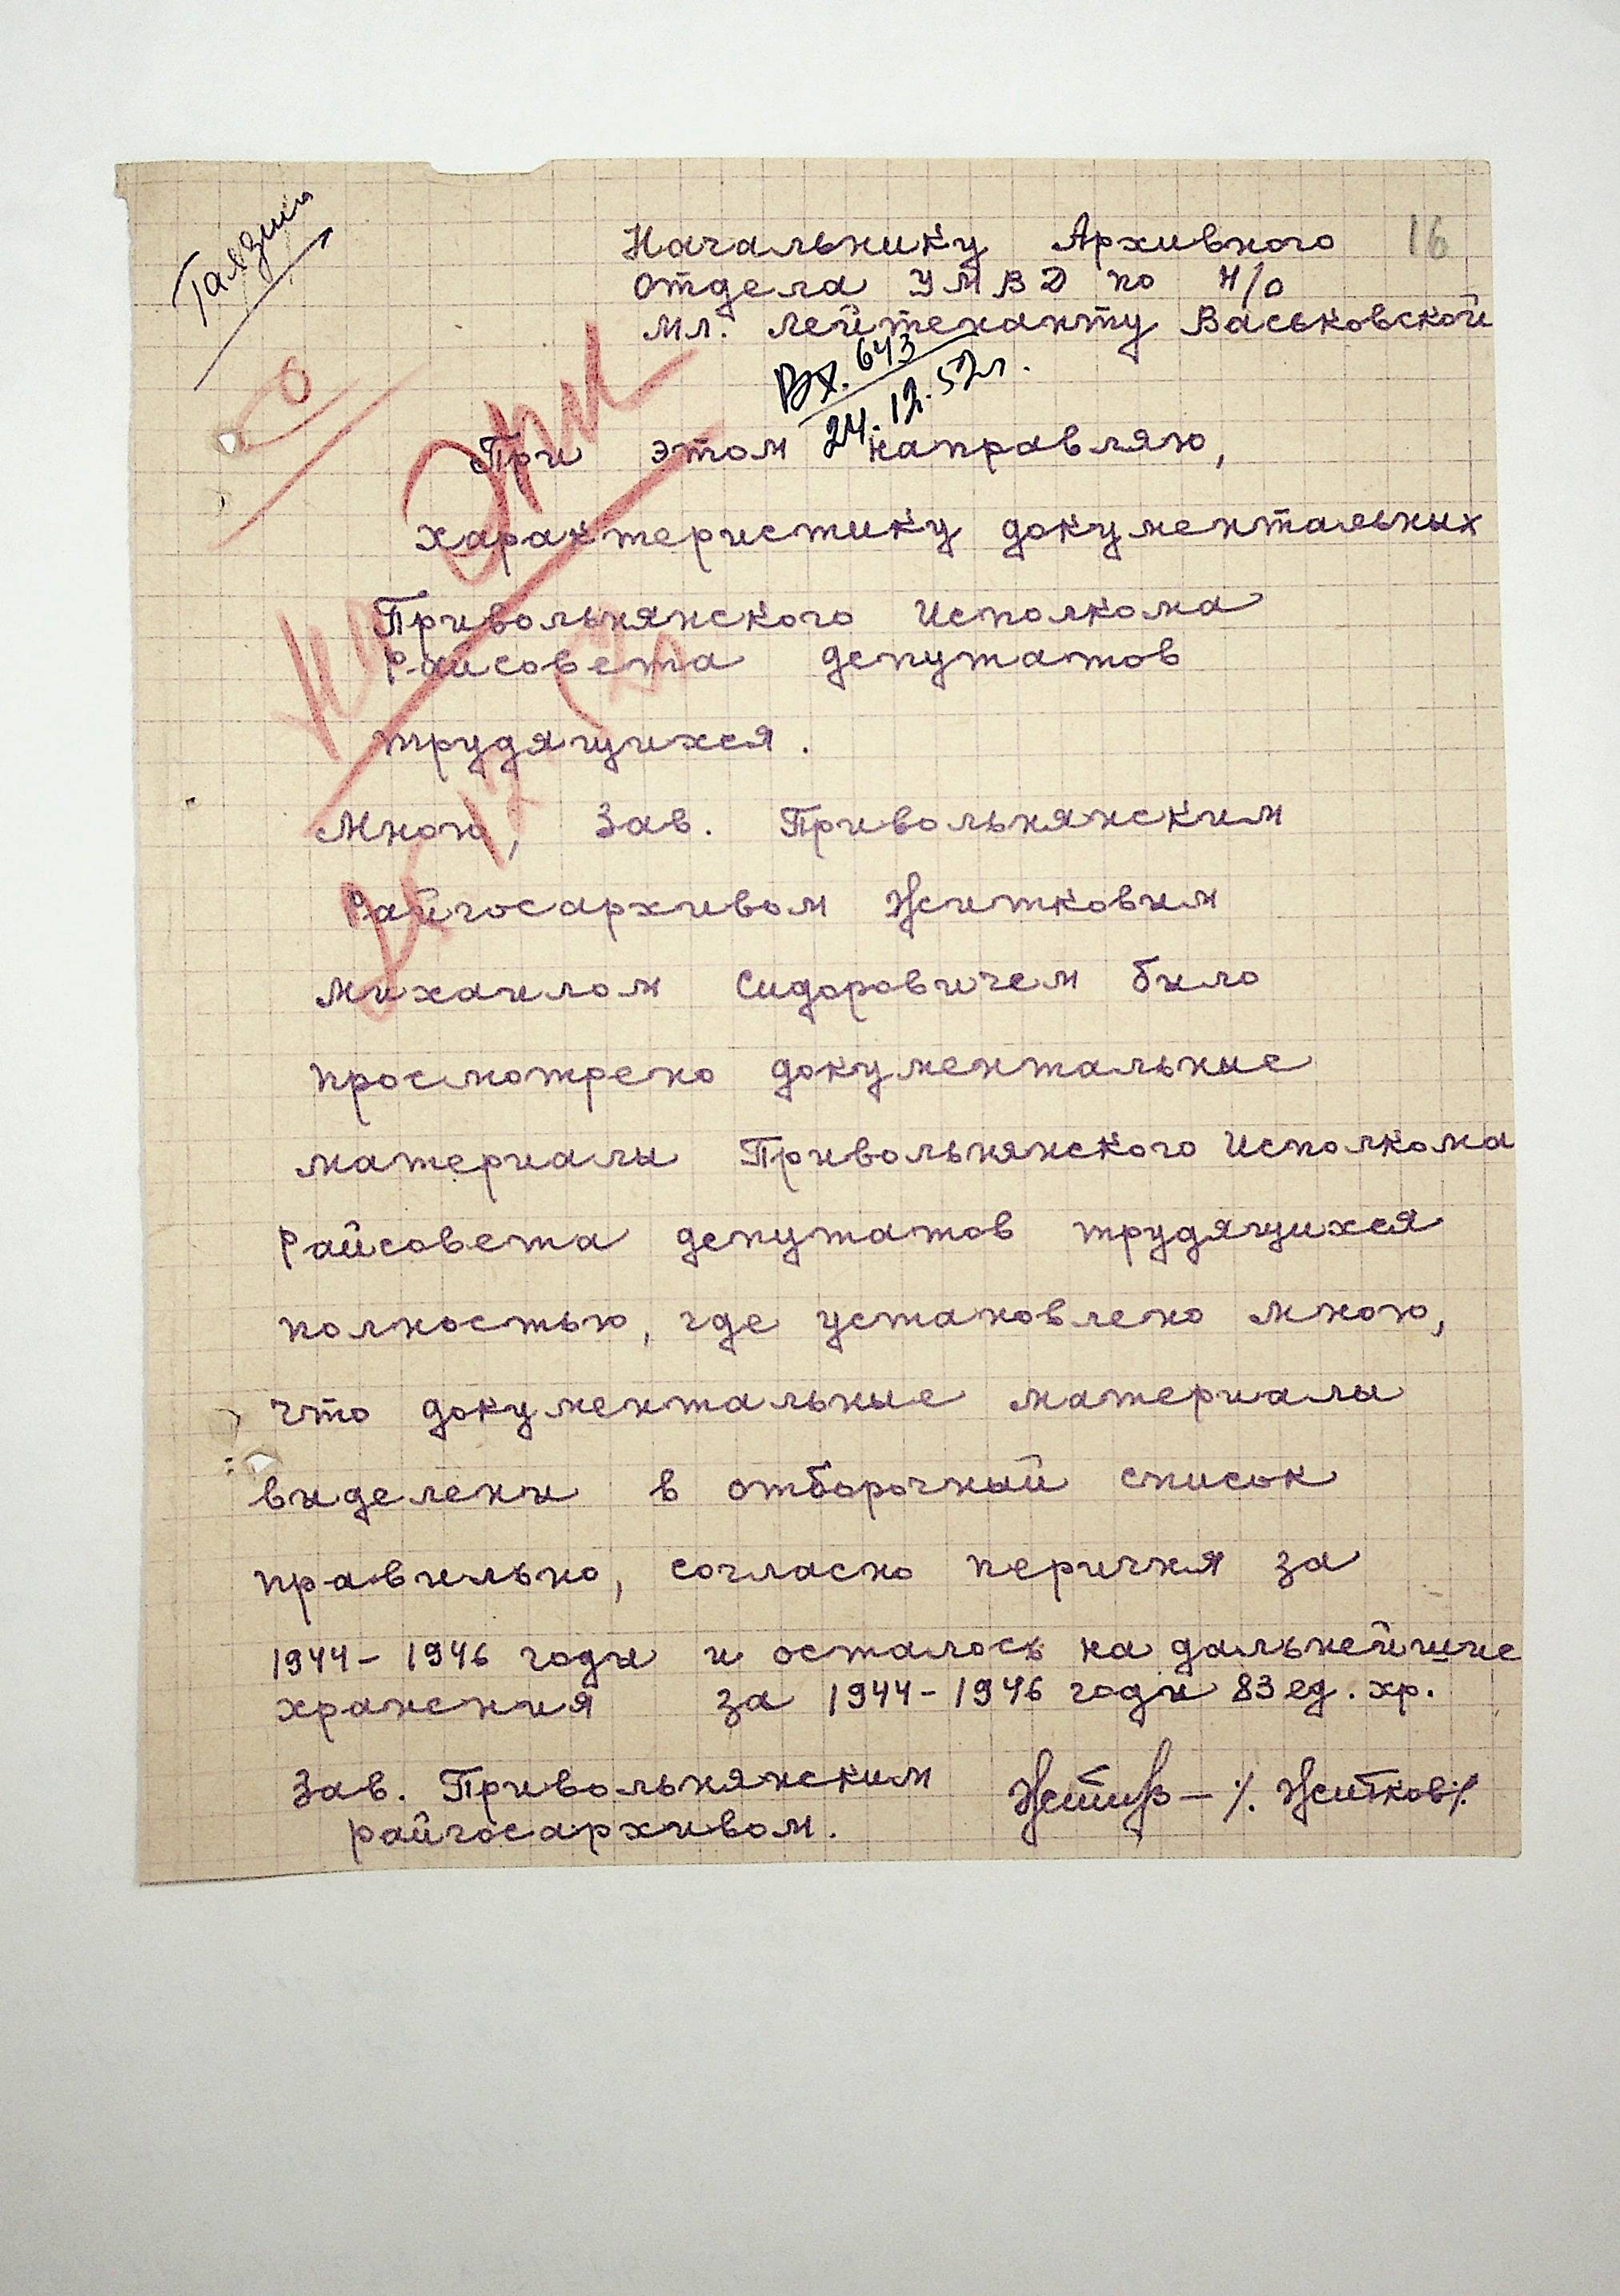 16
Начальнику Архивного
Отдела УМВД по Н/О
Мл. лейтенанту Васьковской
Вх. 643
24.12.52г.
При этом направляю,
характеристику документальных
Привольнянского Исполкома
Райсовета депутатов
трудящихся.
Мною, Зав. Привольнянским
Райгосархивом Житковым
Михаилом Сидоровичем было
просмотрено документальные
материалы Привольнянского Исполкома
Райсовета депутатов трудящихся
полностью, где установлено мною,
что документальные материалы
выделены в отборочный список
правильно, согласно перичня за
1944-1946 годы и осталось на дальнейшие
хранения за 1944-1946 годы 83 ед. хр.
Зав. Привольнянским
райгосархивом. /. Житков/.